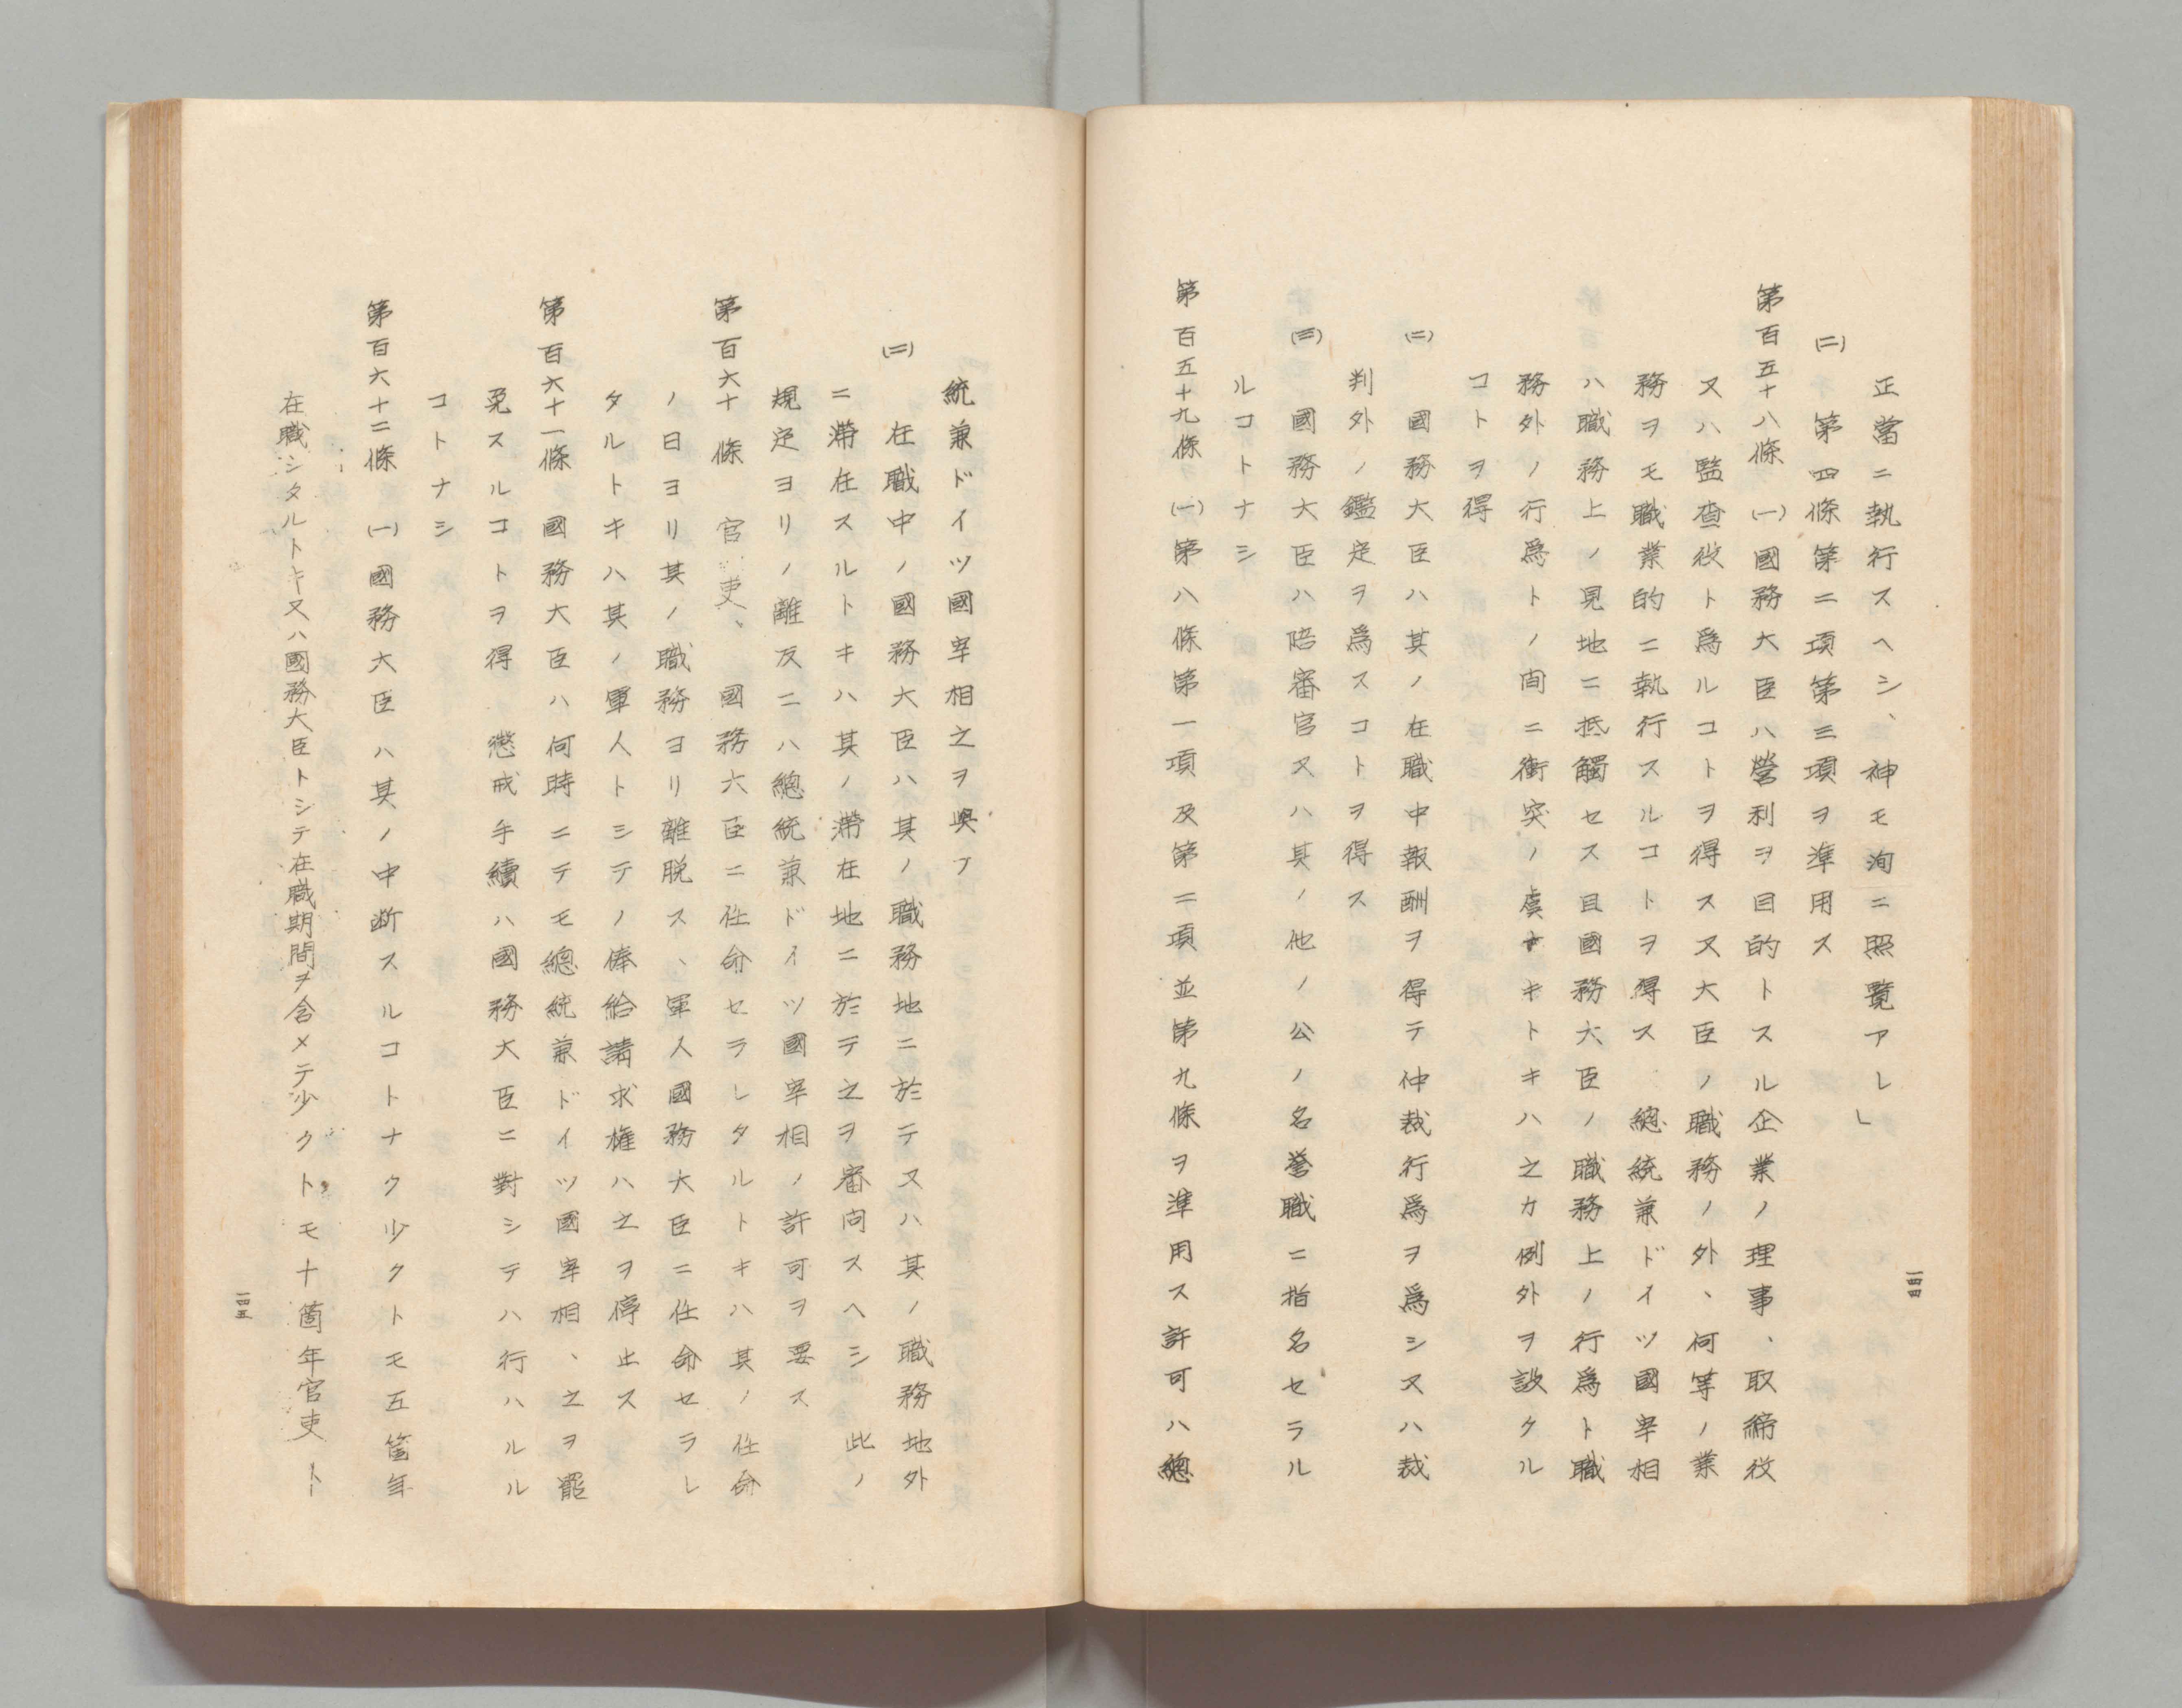 正當ニ執行スヘシ、神モ洵ニ照覽アレ」
(二) 第四條第二項第三項ヲ準用ス
第百五十八條 (一)國務大臣ハ營利ヲ目的トスル企業ノ理事、取締役
又ハ監査役ト爲ルコトヲ得ス又大臣ノ職務ノ外、何等ノ業
務ヲモ職業的ニ執行スルコトヲ得ス 總統兼ドイツ國宰相
ハ職務上ノ見地ニ抵觸セス且國務大臣ノ職務上ノ行爲ト職
務外ノ行爲トノ間ニ衝突ノ虞ナキトキハ之カ例外ヲ設クル
コトヲ得
(二) 國務大臣ハ其ノ在職中報酬ヲ得テ仲裁行爲ヲ爲シ又ハ裁
判外ノ鑑定ヲ爲スコトヲ得ス
(三) 國務大臣ハ陪審官又ハ其ノ他ノ公ノ名譽職ニ指名セラル
ルコトナシ
第百五十九條 (一)第八條第一項及第二項並第九條ヲ準用ス許可ハ總
一四四
統兼ドイツ國宰相之ヲ與フ
(二) 在職中ノ國務大臣ハ其ノ職務地ニ於テ又ハ其ノ職務地外
ニ滯在スルトキハ其ノ滯在地ニ於テ之ヲ審問スヘシ 此ノ
規定ヨリノ離反ニハ總統兼ドイツ國宰相ノ許可ヲ要ス
第百六十條 官吏、國務大臣ニ任命セラレタルトキハ其ノ任命
ノ日ヨリ其ノ職務ヨリ離脱ス、軍人國務大臣ニ任命セラレ
タルトキハ其ノ軍人トシテノ俸給請求權ハ之ヲ停止ス
第百六十一條 國務大臣ハ何時ニテモ總統兼ドイツ國宰相、之ヲ罷
免スルコトヲ得 懲戒手續ハ國務大臣ニ對シテハ行ハルル
コトナシ
第百六十二條 (一)國務大臣ハ其ノ中斷スルコトナク少クトモ五箇年
在職シタルトキ又ハ國務大臣トシテ在職期間ヲ含メテ少クトモ十箇年官吏ト
一四五